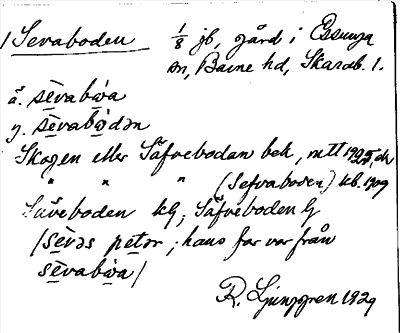 1 Sevaboden 1/8 jb, gård i Essunga
sn, Barne hd, Skarab. l.
å. sēvabωa
y. sēvabωdən
Skogen eller Säfvebodan bek, mtl 1925, ch
" " " (Sefvaboden) kb. 1909
Säveboden kg; Säfveboden G
/sēvəs petər; hans far var från
sēvabωa/
R. Ljunggren 1929